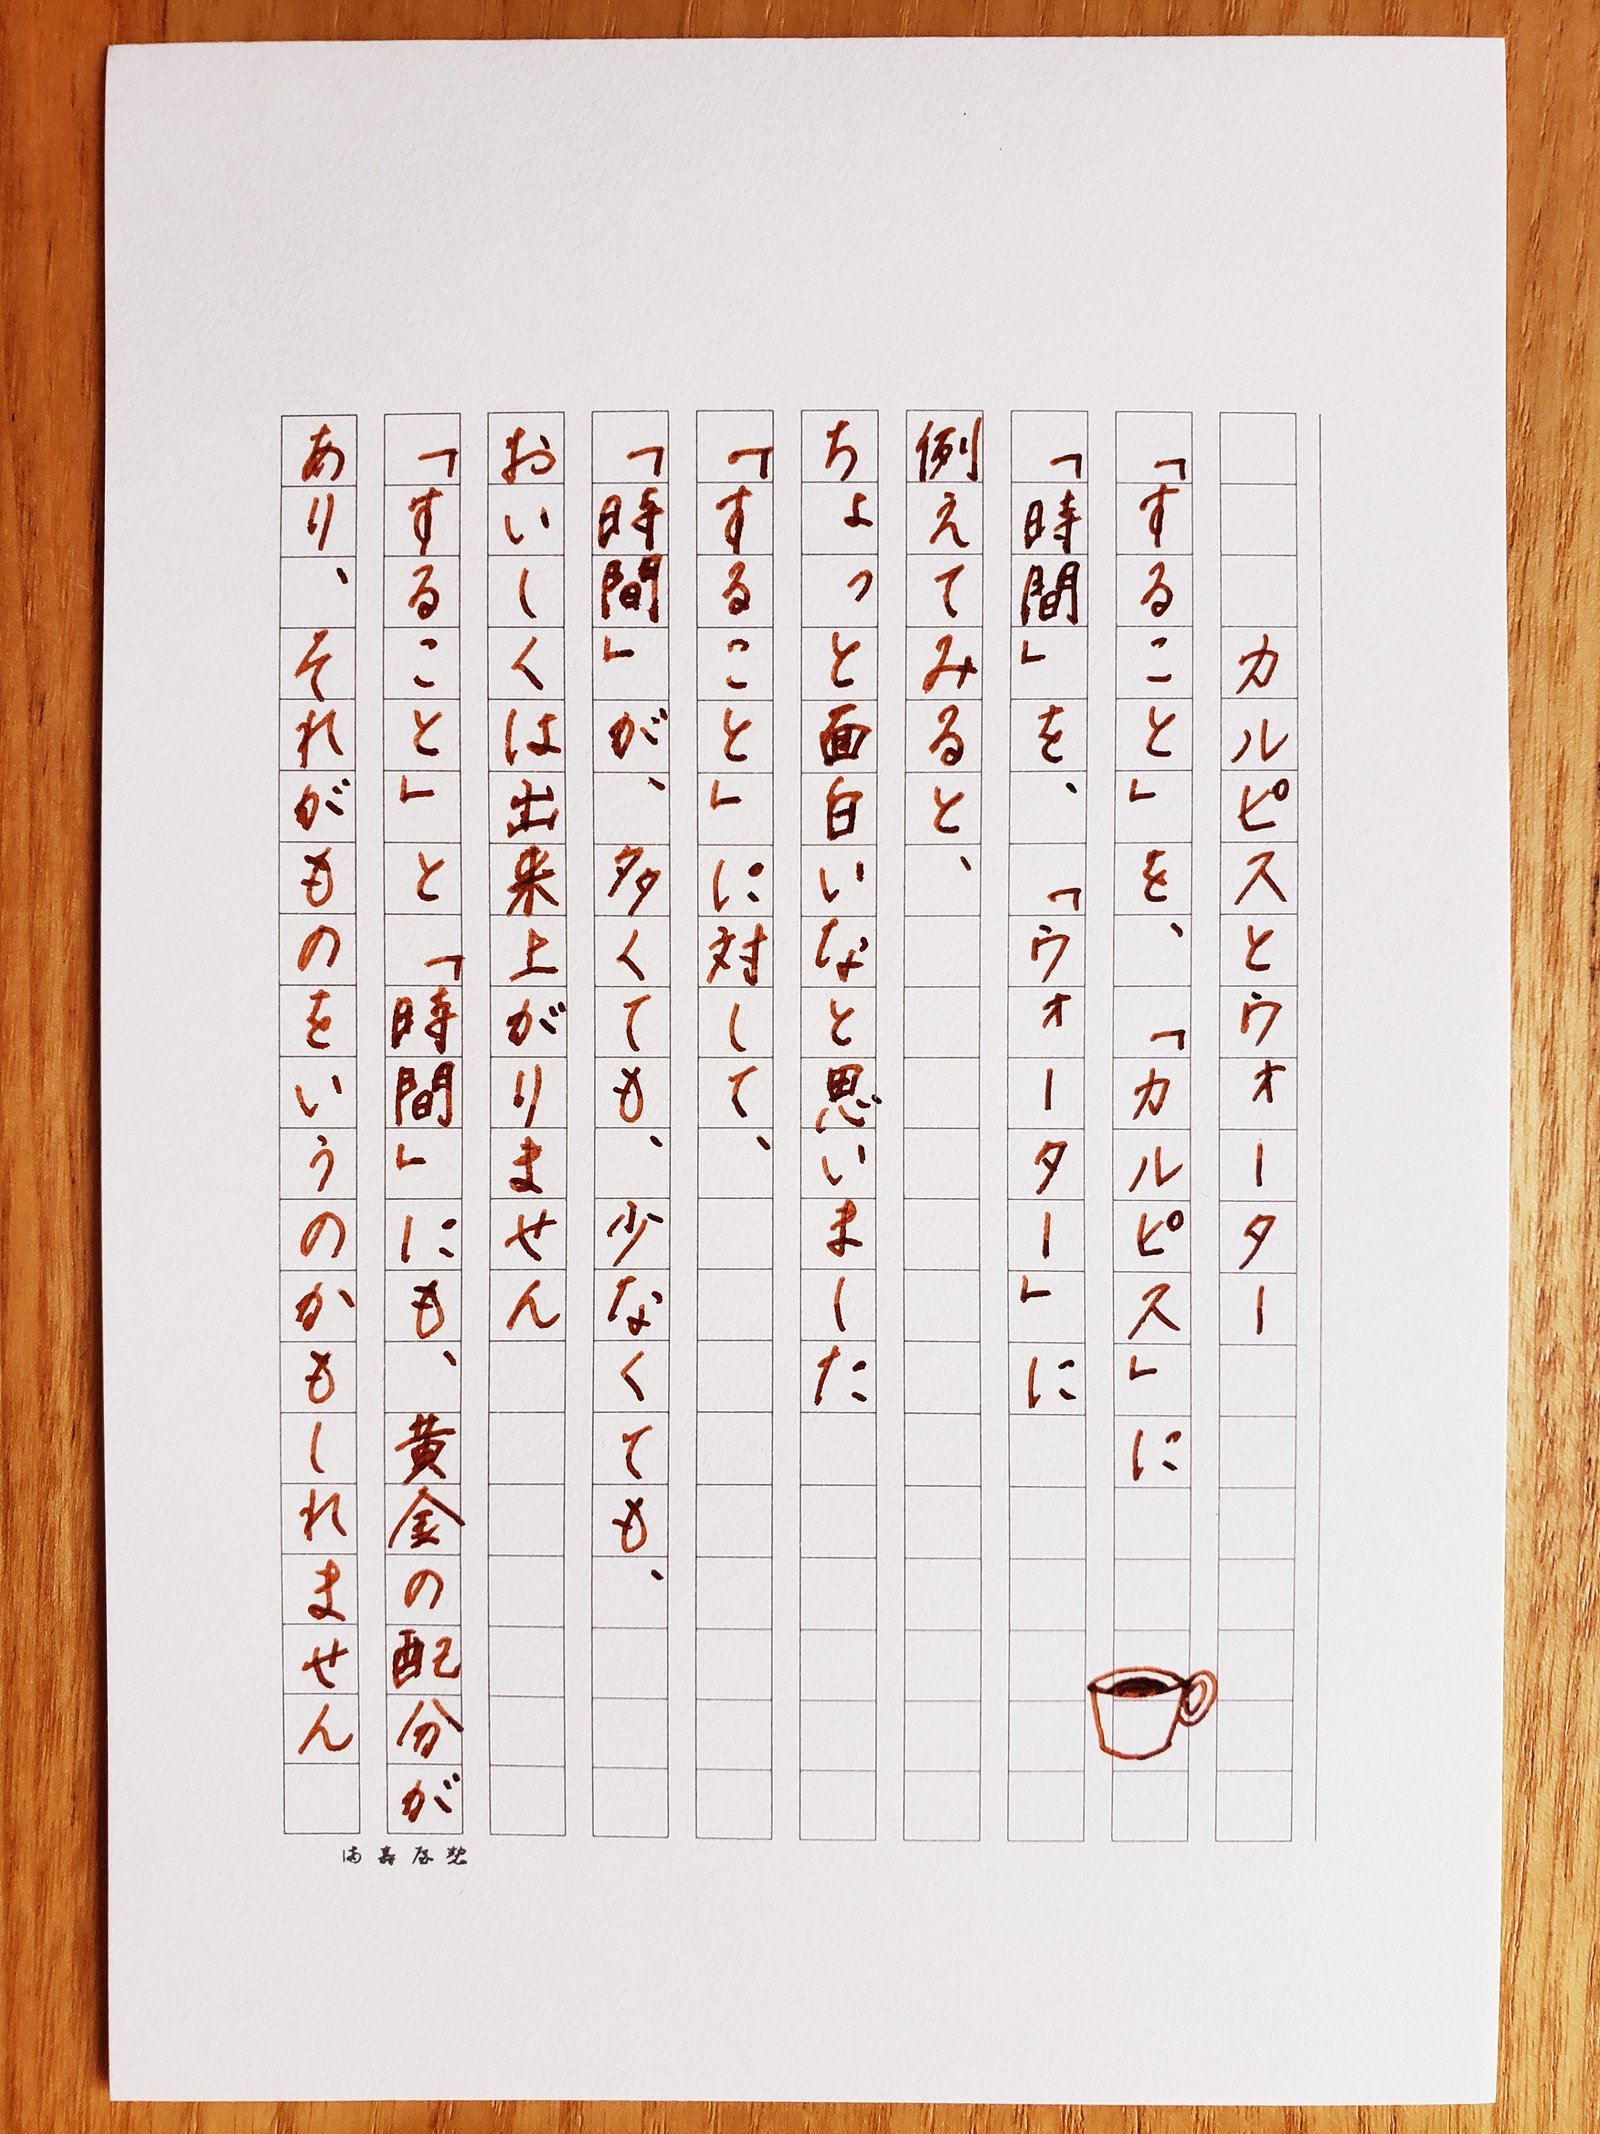 カルピスとウォーター
「すること」を、「カルピス」に
「時間」を、「ウォーター」に
例えてみると、
ちょっと面白いなと思いました
「すること」に対して、
「時間」が、多くても、少なくても、
おいしくは出来上がりません
「すること」と「時間」にも、黄金の配分が
あり、それがものをいうのかもしれません
満寿屋